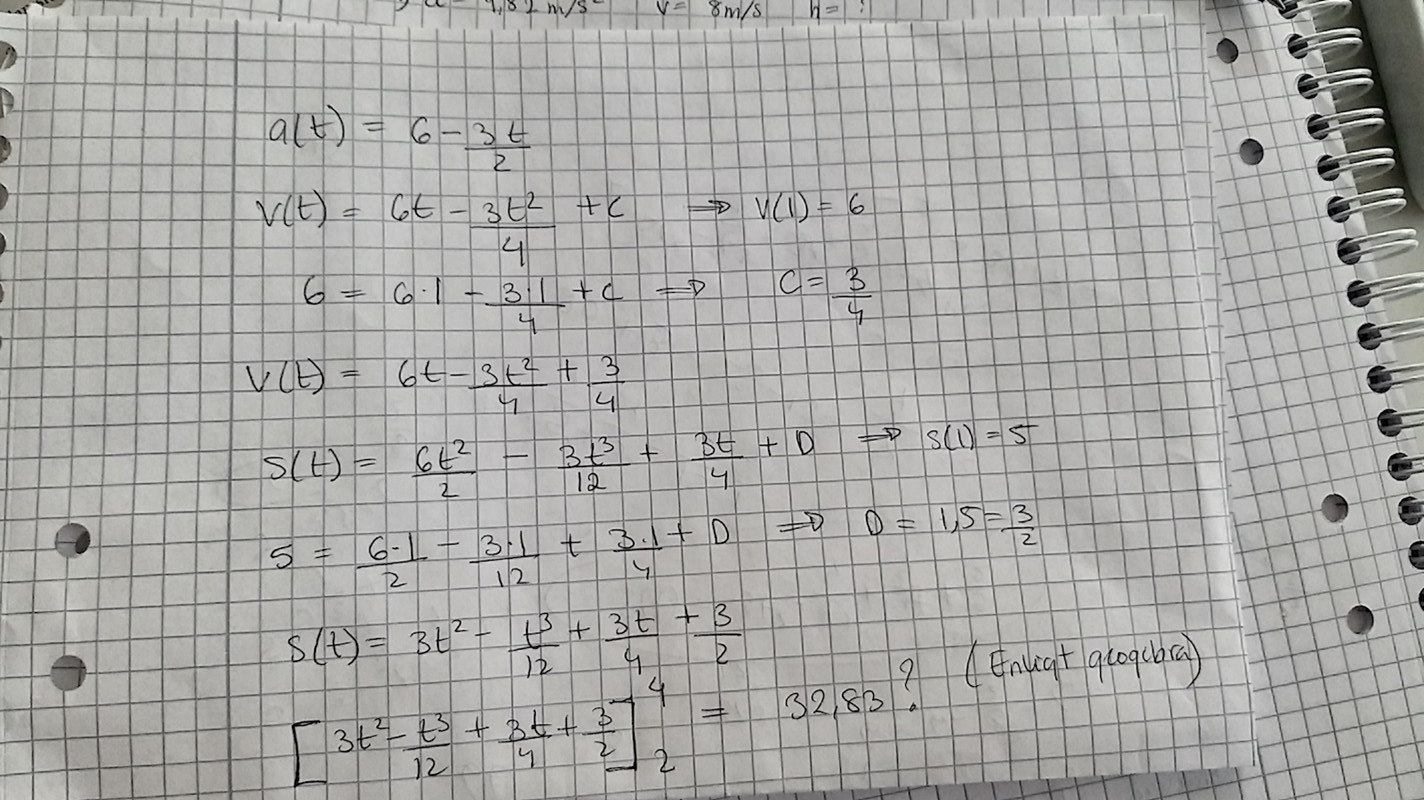 v = 8m/s h = ?
a(t) = 6 - 3t/2
v(t) = 6t - 3t²/4 + C ⇒ v(1) = 6
6 = 6·1 - 3·1/4 + C ⇒ C = 3/4
v(t) = 6t - 3t²/4 + 3/4
s(t) = 6t²/2 - 3t³/12 + 3t/4 + D ⇒ s(1) = 5
5 = 6·1/2 - 3·1/12 + 3·1/4 + D ⇒ D = 1,5 = 3/2
s(t) = 3t² - t³/12 + 3t/4 + 3/2
[3t² - t³/12 + 3t/4 + 3/2]⁴₂ = 32,83? (Enligt geogebra)